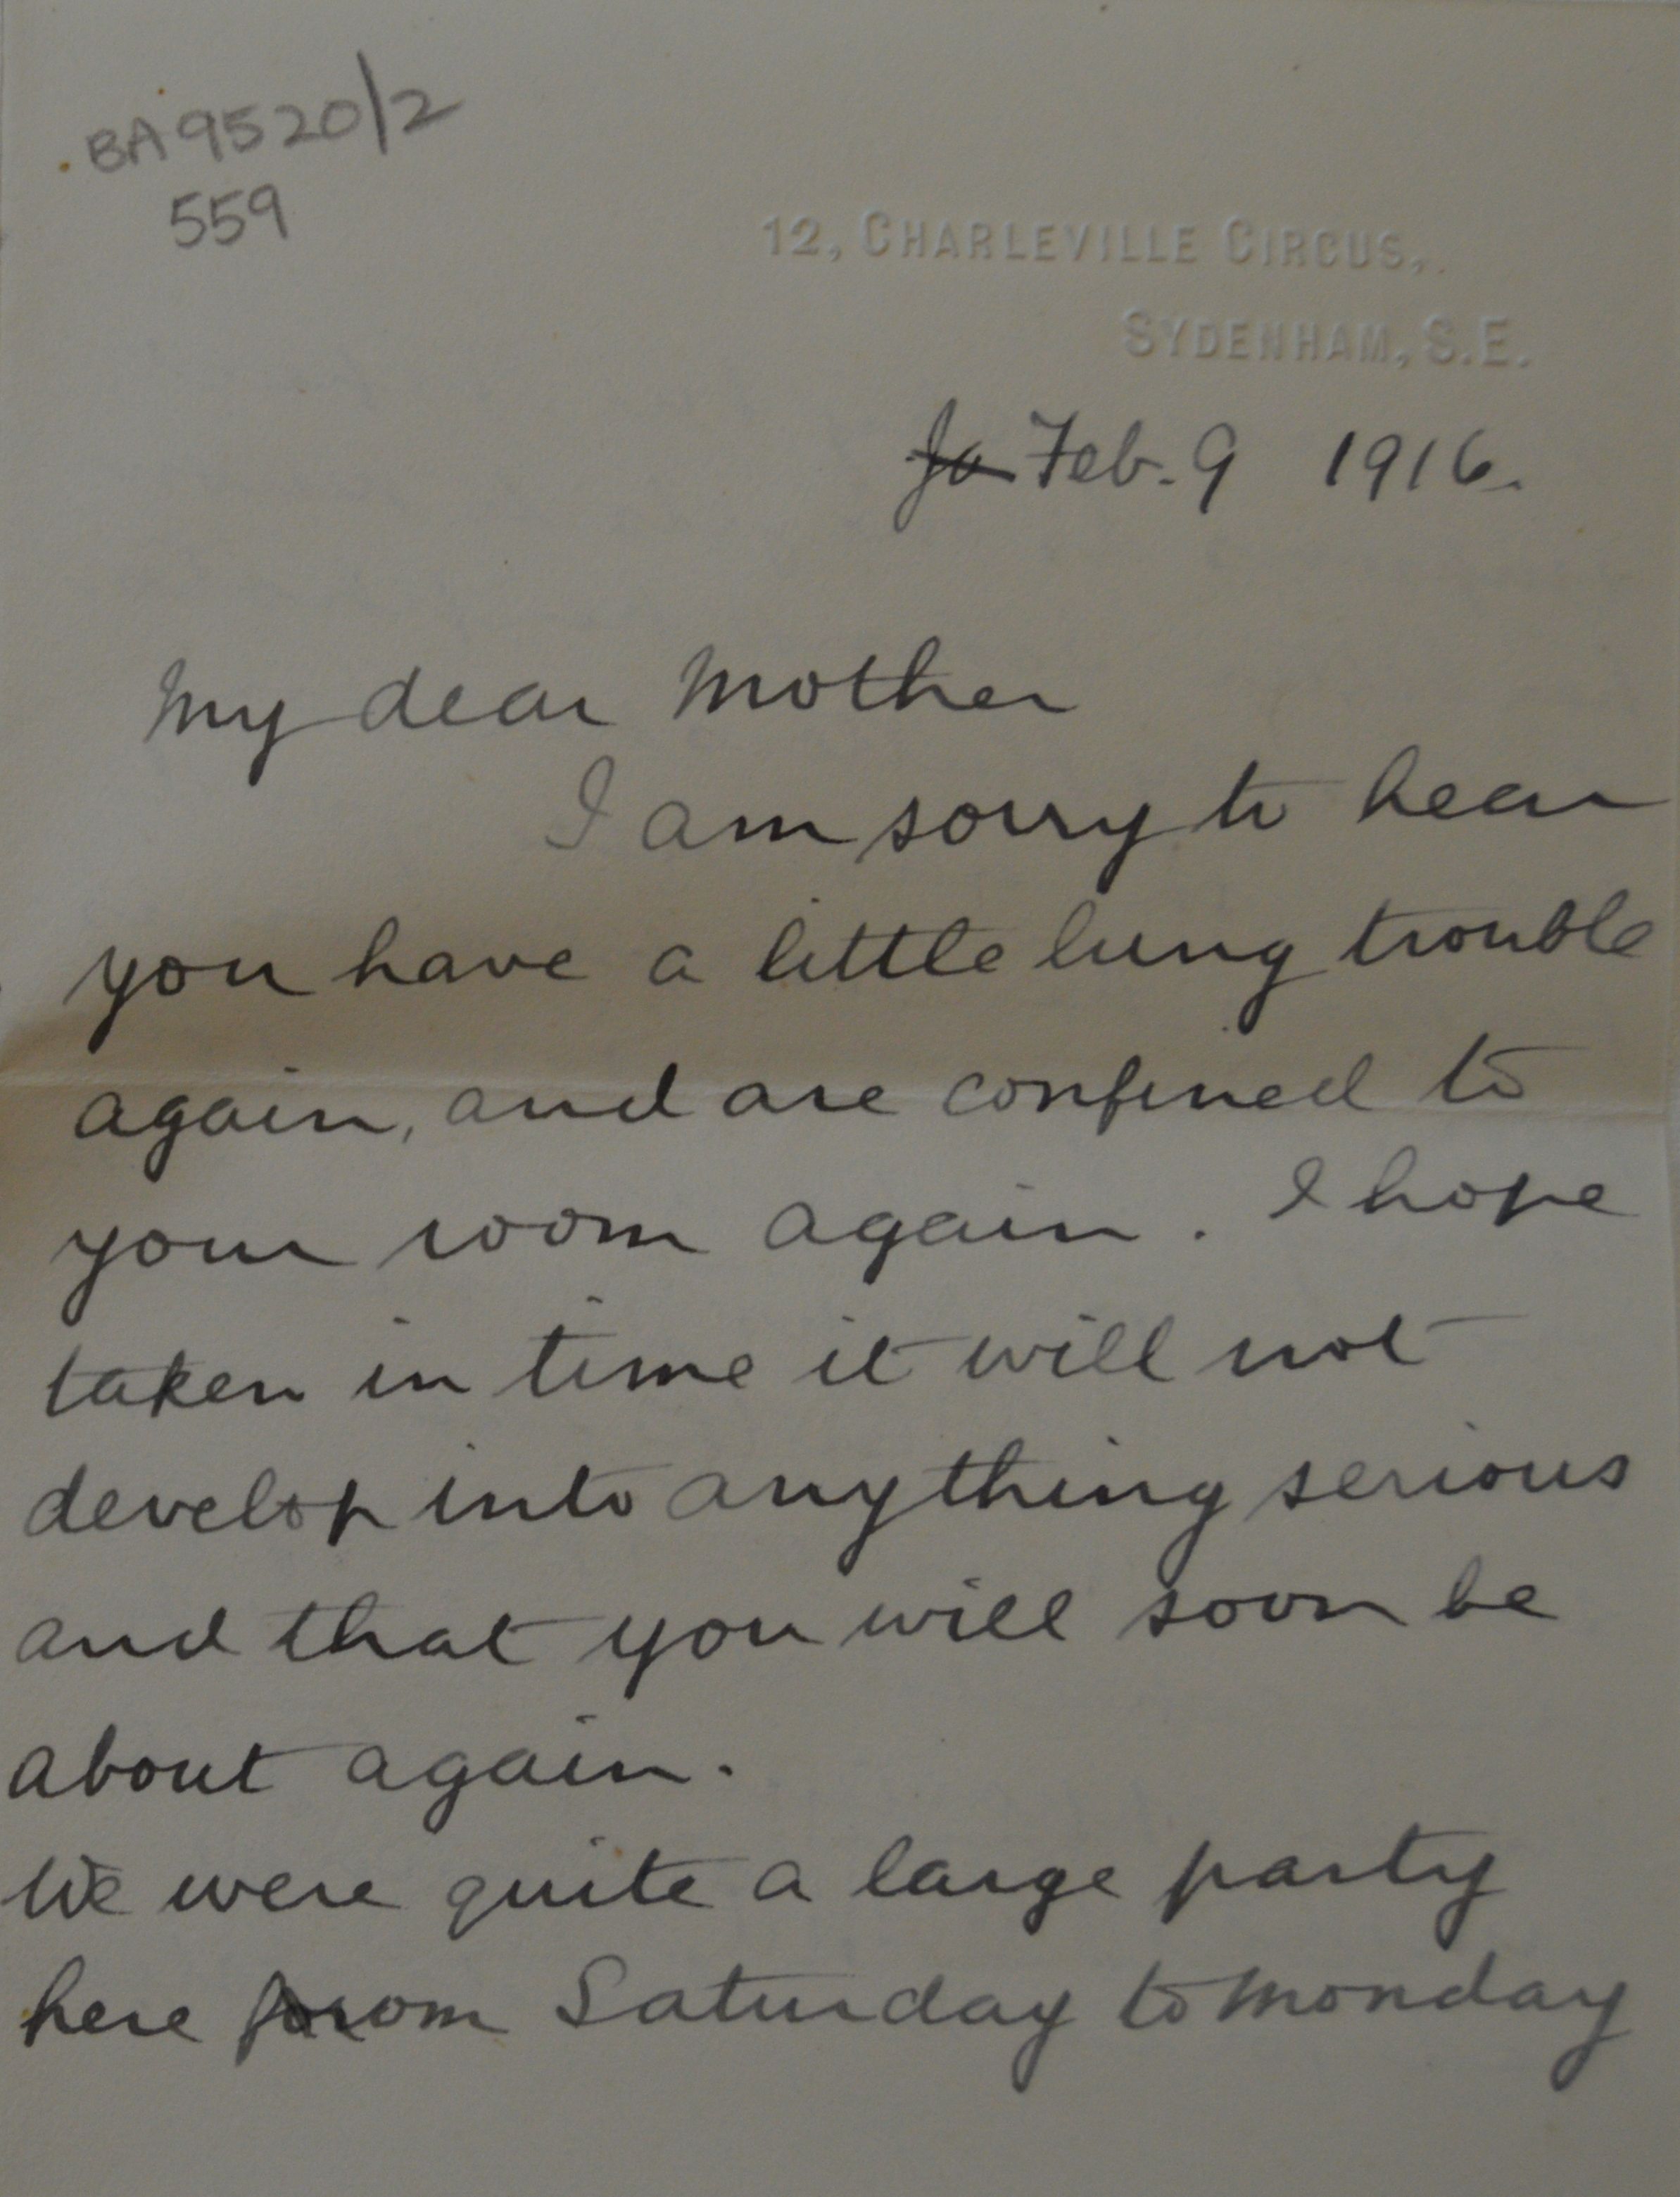 BA9520/2
559
12, CHARLEVILLE CIRCUS,
SYDENHAM, S.E.
Ja Feb. 9 1916.
My dear Mother
I am sorry to hear
you have a little lung trouble
again, and are confined to
your room again. I hope
taken in time it will not
develop into anything serious
and that you will soon be
about again.
We were quite a large party
here from Saturday to Monday